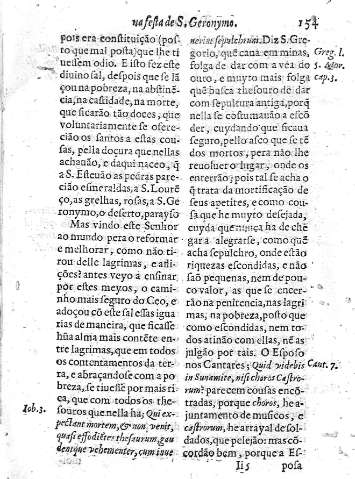 na festa de S. Geronymo. 154
pois era constituição (pos-
to que mal posta) que lhe ti
uessem odio. E isto fez este
diuino sal, despois que se lã
çou na pobreza, na abstinē
cia, na castidade, na morte,
que ficarão tão doces, que
voluntariamente se ofere-
cião os santos a estas cou-
sas, pella doçura que nellas
achauão, e daqui naceo, q̃
a S. Esteuão as pedras pare-
cião esmeraldas, a S. Louren
ço, as grelhas, rosas, a S. Ge
ronymo, o deserto, parayso
Mas vindo este Senhor
ao mundo pera o reformar
e melhorar, como não ti-
rou delle lagrimas, e afli-
ções? antes veyo a ensinar
por estes meyos, o cami-
nho mais seguro do Ceo, e
adoçou cõ este sal essas igua
rias de maneira, que ficasse
hũa alma mais contēte en-
tre lagrimas, que em todos
os contentamentos da ter-
ra, e abraçandose com a po
breza, se tiuesse por mais ri
ca, que com todos os the-
souros que nella ha; Qui ex-
pectant mortem, & non venit,
quasi effodientes thesaurum, gau
dentque vehementer, cum inue
Iob. 3.
nerint sepulchrum. Diz S. Gre-
gorio, quē caua em minas,
folga de dar com a vea do
ouro, e muyto mais folga
quē busca thesouro de dar
com sepultura antiga, porq̃
nella se costumauão a escõ
der, cuydando que ficaua
seguro, pello asco que se tē
dos mortos, pera não lhe
reuoluer o lugar, onde os
enterrão; pois tal se acha o
q̃ trata da mortificação de
seus apetites, e como cou-
sa que he muyto desejada,
cuyda que nunca ha de che
gar a alegrarse, como quē
acha sepulchro, onde estão
riquezas escondidas, e não
saõ pequenas, nem de pou-
co valor, as que se encer-
rão na penitencia, nas lagri
mas, na pobreza, posto que
como escondidas, nem to-
dos atinão com ellas, nē as
julgão por tais. O Esposo
nos Cantares; Quid videbis
in Sunamite, nisi choros Castro-
rum? parecem cousas encõ-
tradas, porque choros, he a-
juntamento de musicos, e
castrorum, he arrayal de sol-
dados, que pelejão: mas cõ-
cordão bem, porque a Es-
Greg. l.
5. Mor.
cap. 3.
Cant. 7.
Ii 5 posa